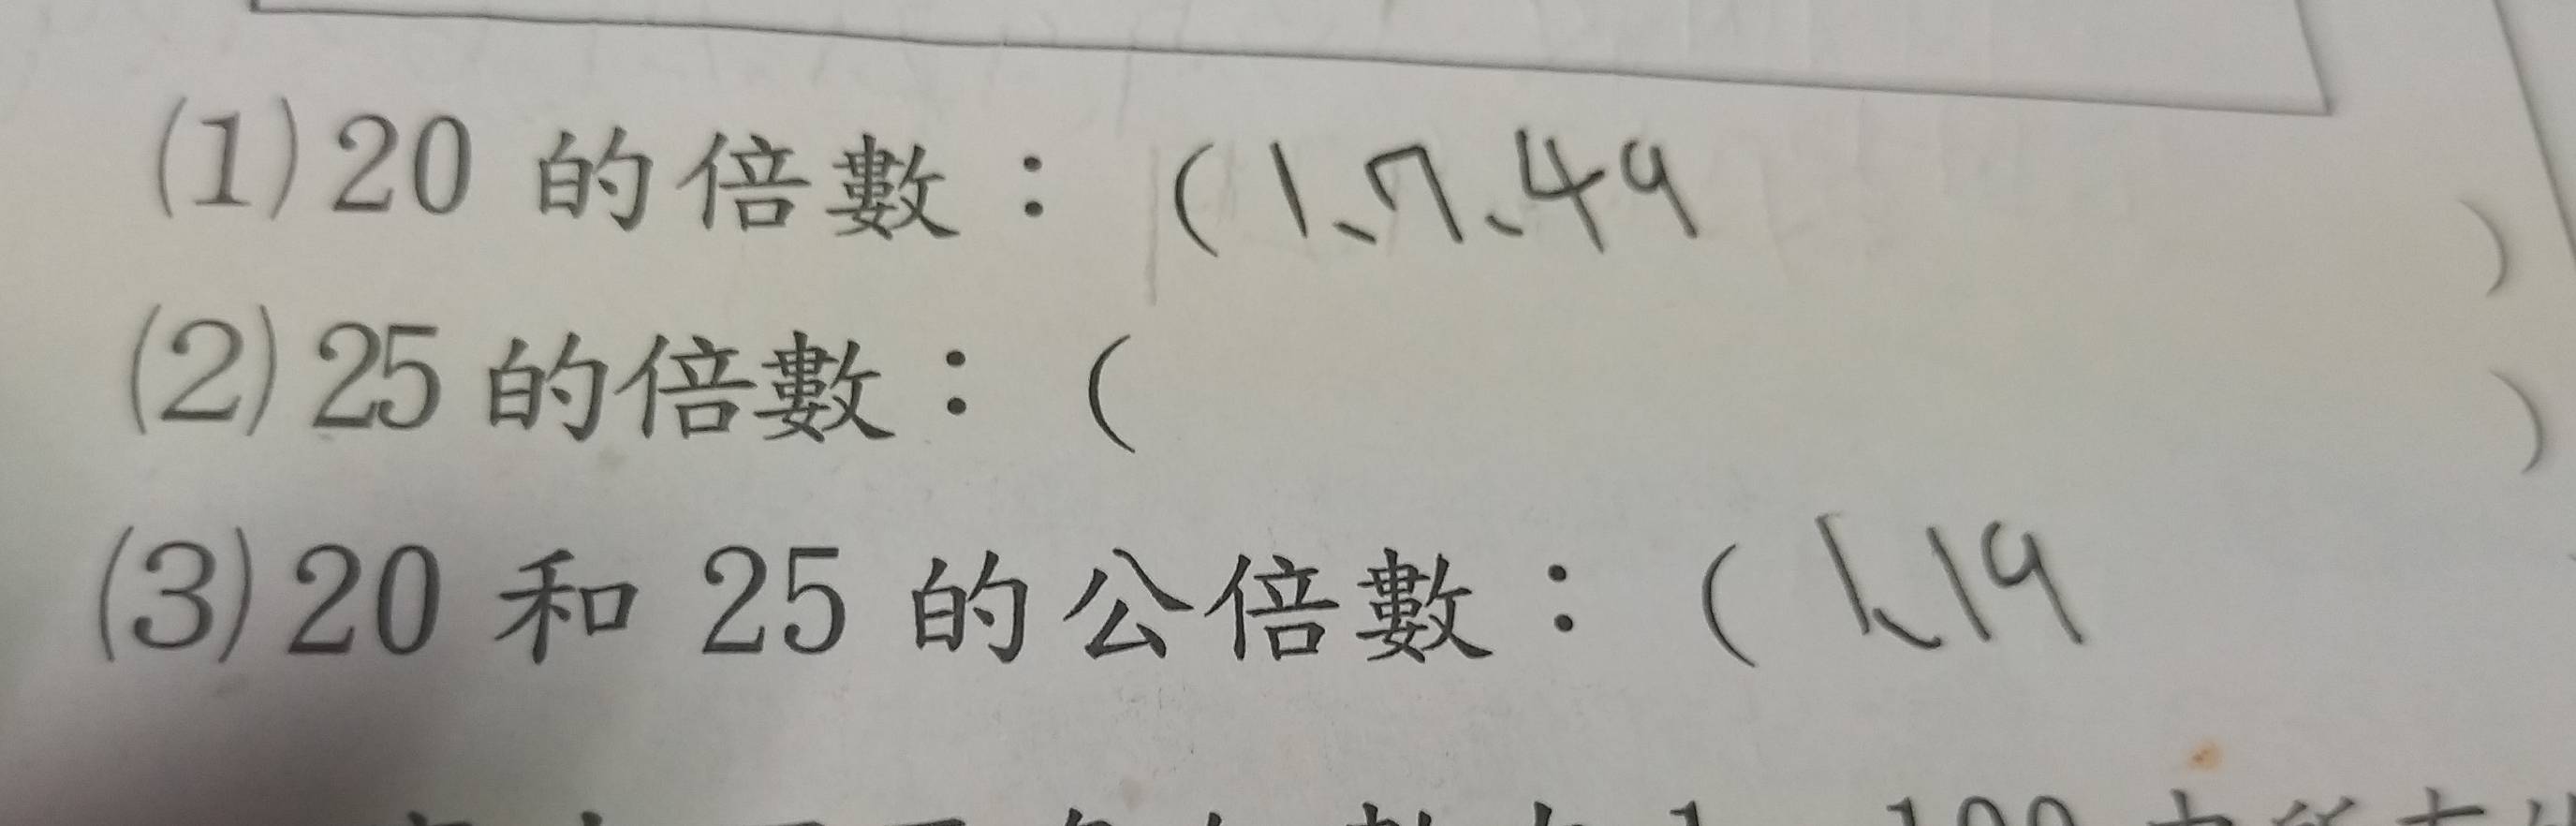 (1) 20 的倍數：( 1、7、49 )
(2) 25 的倍數：( )
(3) 20 和 25 的公倍數：( 1、19